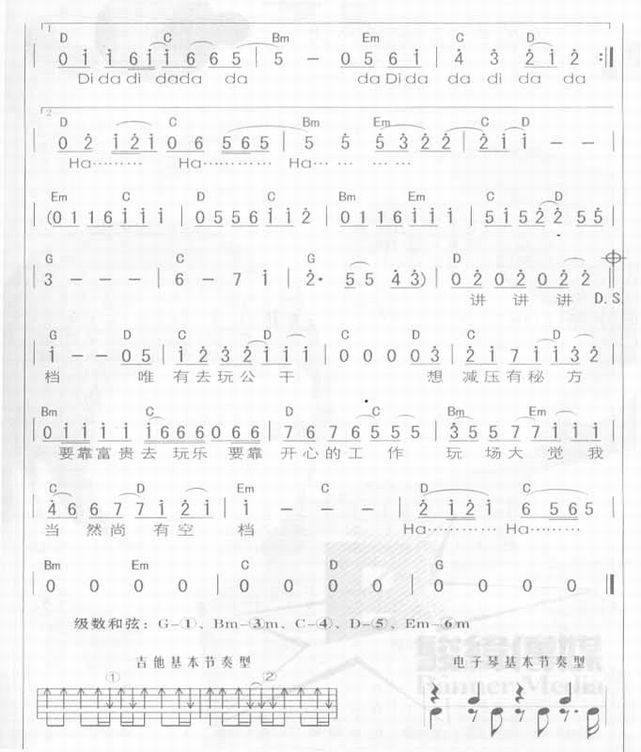 1
D C Bm Em C D
0 1 1 6 1 1 6 6 5 | 5 - 0 5 6 1 | 4 3 2 1 2 :||
Di da di dada da da Di da da di da da
2
D C Bm Em C D
0 2 1 2 1 0 6 5 6 5 | 5 5 5 3 2 2 | 2 1 1 - - |
Ha········· Ha············ Ha··· ··· ···
Em C D C Bm Em C D
(0 1 1 6 1 1 1 | 0 5 5 6 1 1 2 | 0 1 1 6 1 1 1 | 5 1 5 2 2 5 5
G C G D
3 - - - | 6 - 7 1 | 2· 5 5 4 3) | 0 2 0 2 0 2 2
讲 讲 讲 D.S.
G D C D C D C D
1 - - 0 5 | 1 2 3 2 1 1 1 | 0 0 0 0 3 | 2 1 7 1 1 3 2
档 唯 有去玩公干 想 减压有秘 方
Bm C D C Bm Em
0 1 1 1 1 1 6 6 6 0 6 6 | 7 6 7 6 5 5 5 | 3 5 5 7 7 1 1 1
要靠富贵去 玩乐 要靠 开心的工 作 玩 场大 觉 我
C D Em C D C
4 6 6 7 7 1 2 1 | 1 - - - | 2 1 2 1 6 5 6 5
当 然尚 有空 档 Ha········· Ha·········
Bm Em C D G
0 0 0 0 | 0 0 0 0 | 0 0 0 0
级数和弦：G-①、Bm-③m、C-④、D-⑤、Em-⑥m
吉他基本节奏型 电子琴基本节奏型
① ②
Runner Media